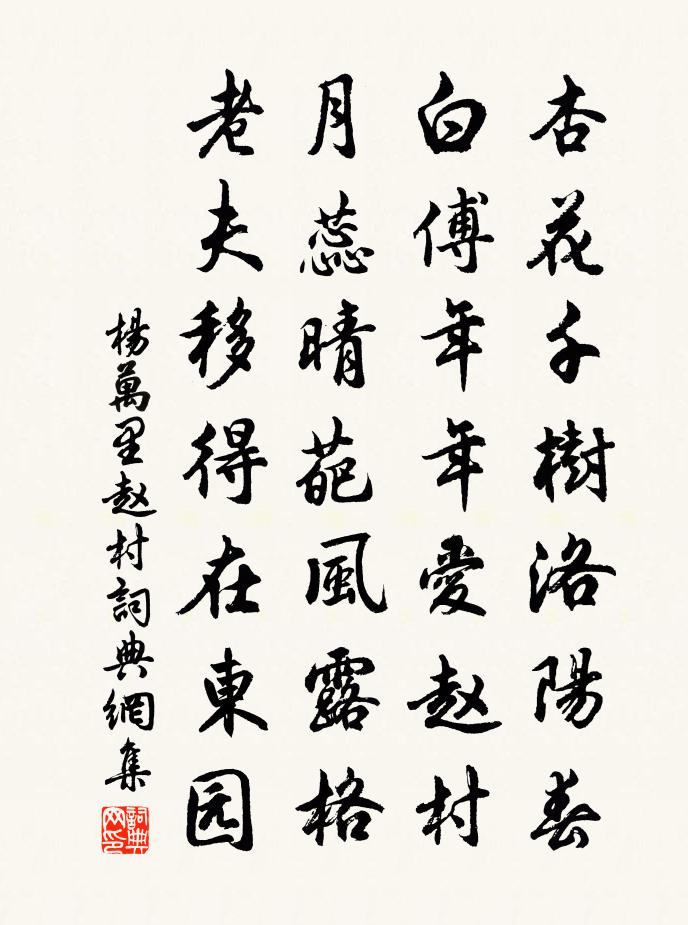 杏花千樹洛陽春
白傅年年愛赵村
月蕊晴葩風露格
老夫移得在東园
楊萬里赵村詞典網集
詞典网印